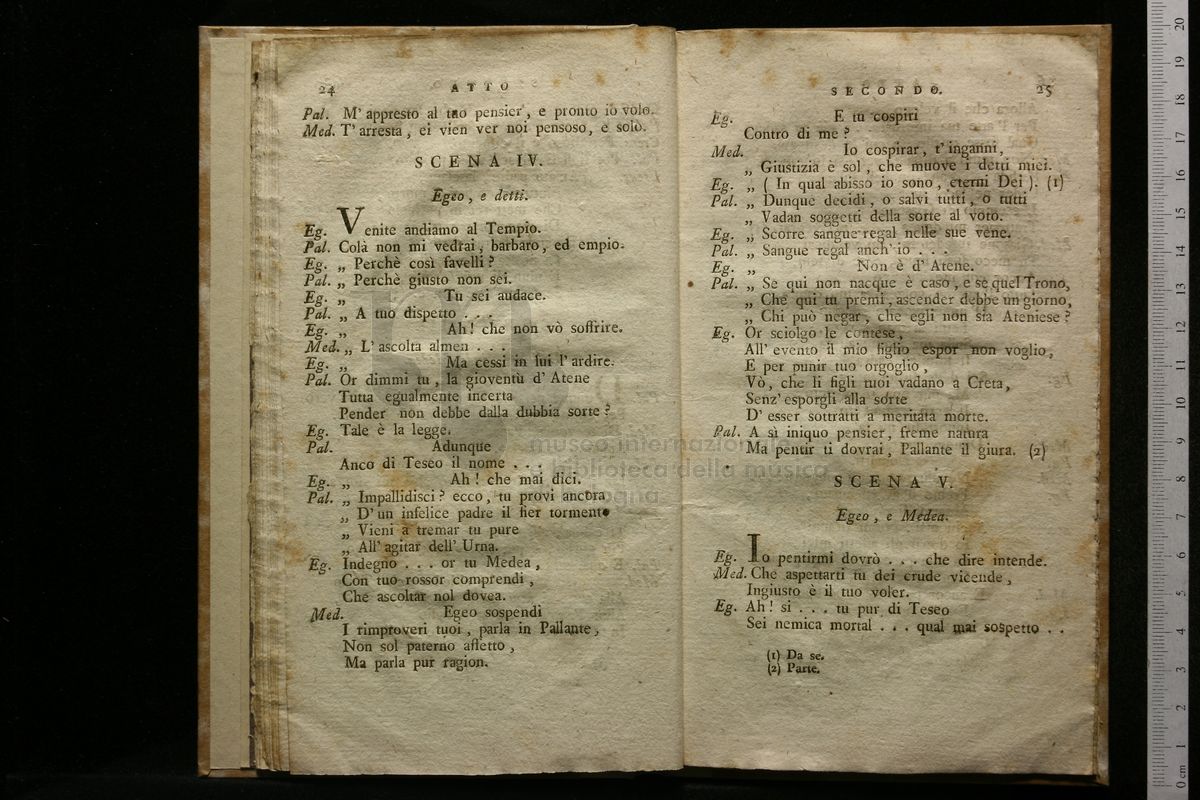 24
ATTO
Pal. M' appresto al tuo pensier, e pronto io volo.
Med. T' arresta, ei vien ver noi pensoso, e solo.
SCENA IV.
Egeo, e detti.
Eg. Venite andiamo al Tempio.
Pal. Colà non mi vedrai, barbaro, ed empio.
Eg. „ Perchè così favelli?
Pal. „ Perchè giusto non sei.
Eg. „ Tu sei audace.
Pal. „ A tuo dispetto . . .
Eg. „ Ah! che non vò soffrire.
Med. „ L' ascolta almen . . .
Eg. „ Ma cessi in lui l' ardire.
Pal. Or dimmi tu, la gioventù d' Atene
Tutta egualmente incerta
Pender non debbe dalla dubbia sorte?
Eg. Tale è la legge.
Pal. Adunque
Anco di Teseo il nome . . .
Eg. „ Ah! che mai dici.
Pal. „ Impallidisci? ecco, tu provi ancora
„ D' un infelice padre il fier tormento
„ Vieni a tremar tu pure
„ All' agitar dell' Urna.
Eg. Indegno . . . or tu Medea,
Con tuo rossor comprendi,
Che ascoltar nol dovea.
Med. Egeo sospendi
I rimproveri tuoi, parla in Pallante,
Non sol paterno affetto,
Ma parla pur ragion.
SECONDO.
25
Eg. E tu cospiri
Contro di me?
Med. Io cospirar, t' inganni,
„ Giustizia è sol, che muove i detti miei.
Eg. „ (In qual abisso io sono, eterni Dei). (1)
Pal. „ Dunque decidi, o salvi tutti, o tutti
„ Vadan soggetti della sorte al voto.
Eg. „ Scorre sangue regal nelle sue vene.
Pal. „ Sangue regal anch' io . . .
Eg. „ Non è d' Atene.
Pal. „ Se qui non nacque è caso, e se quel Trono,
„ Che qui tu premi, ascender debbe un giorno,
„ Chi può negar, che egli non sia Ateniese?
Eg. Or sciolgo le contese,
All' evento il mio figlio espor non voglio,
E per punir tuo orgoglio,
Vò, che li figli tuoi vadano a Creta,
Senz' esporgli alla sorte
D' esser sottratti a meritata morte.
Pal. A sì iniquo pensier, freme natura
Ma pentir ti dovrai, Pallante il giura. (2)
SCENA V.
Egeo, e Medea.
Eg. Io pentirmi dovrò . . . che dire intende.
Med. Che aspettarti tu dei crude vicende,
Ingiusto è il tuo voler.
Eg. Ah! si . . . tu pur di Teseo
Sei nemica mortal . . . qual mai sospetto . .
(1) Da se.
(2) Parte.
museo internazionale
e biblioteca della musica
bologna
0 cm 1 2 3 4 5 6 7 8 9 10 11 12 13 14 15 16 17 18 19 20